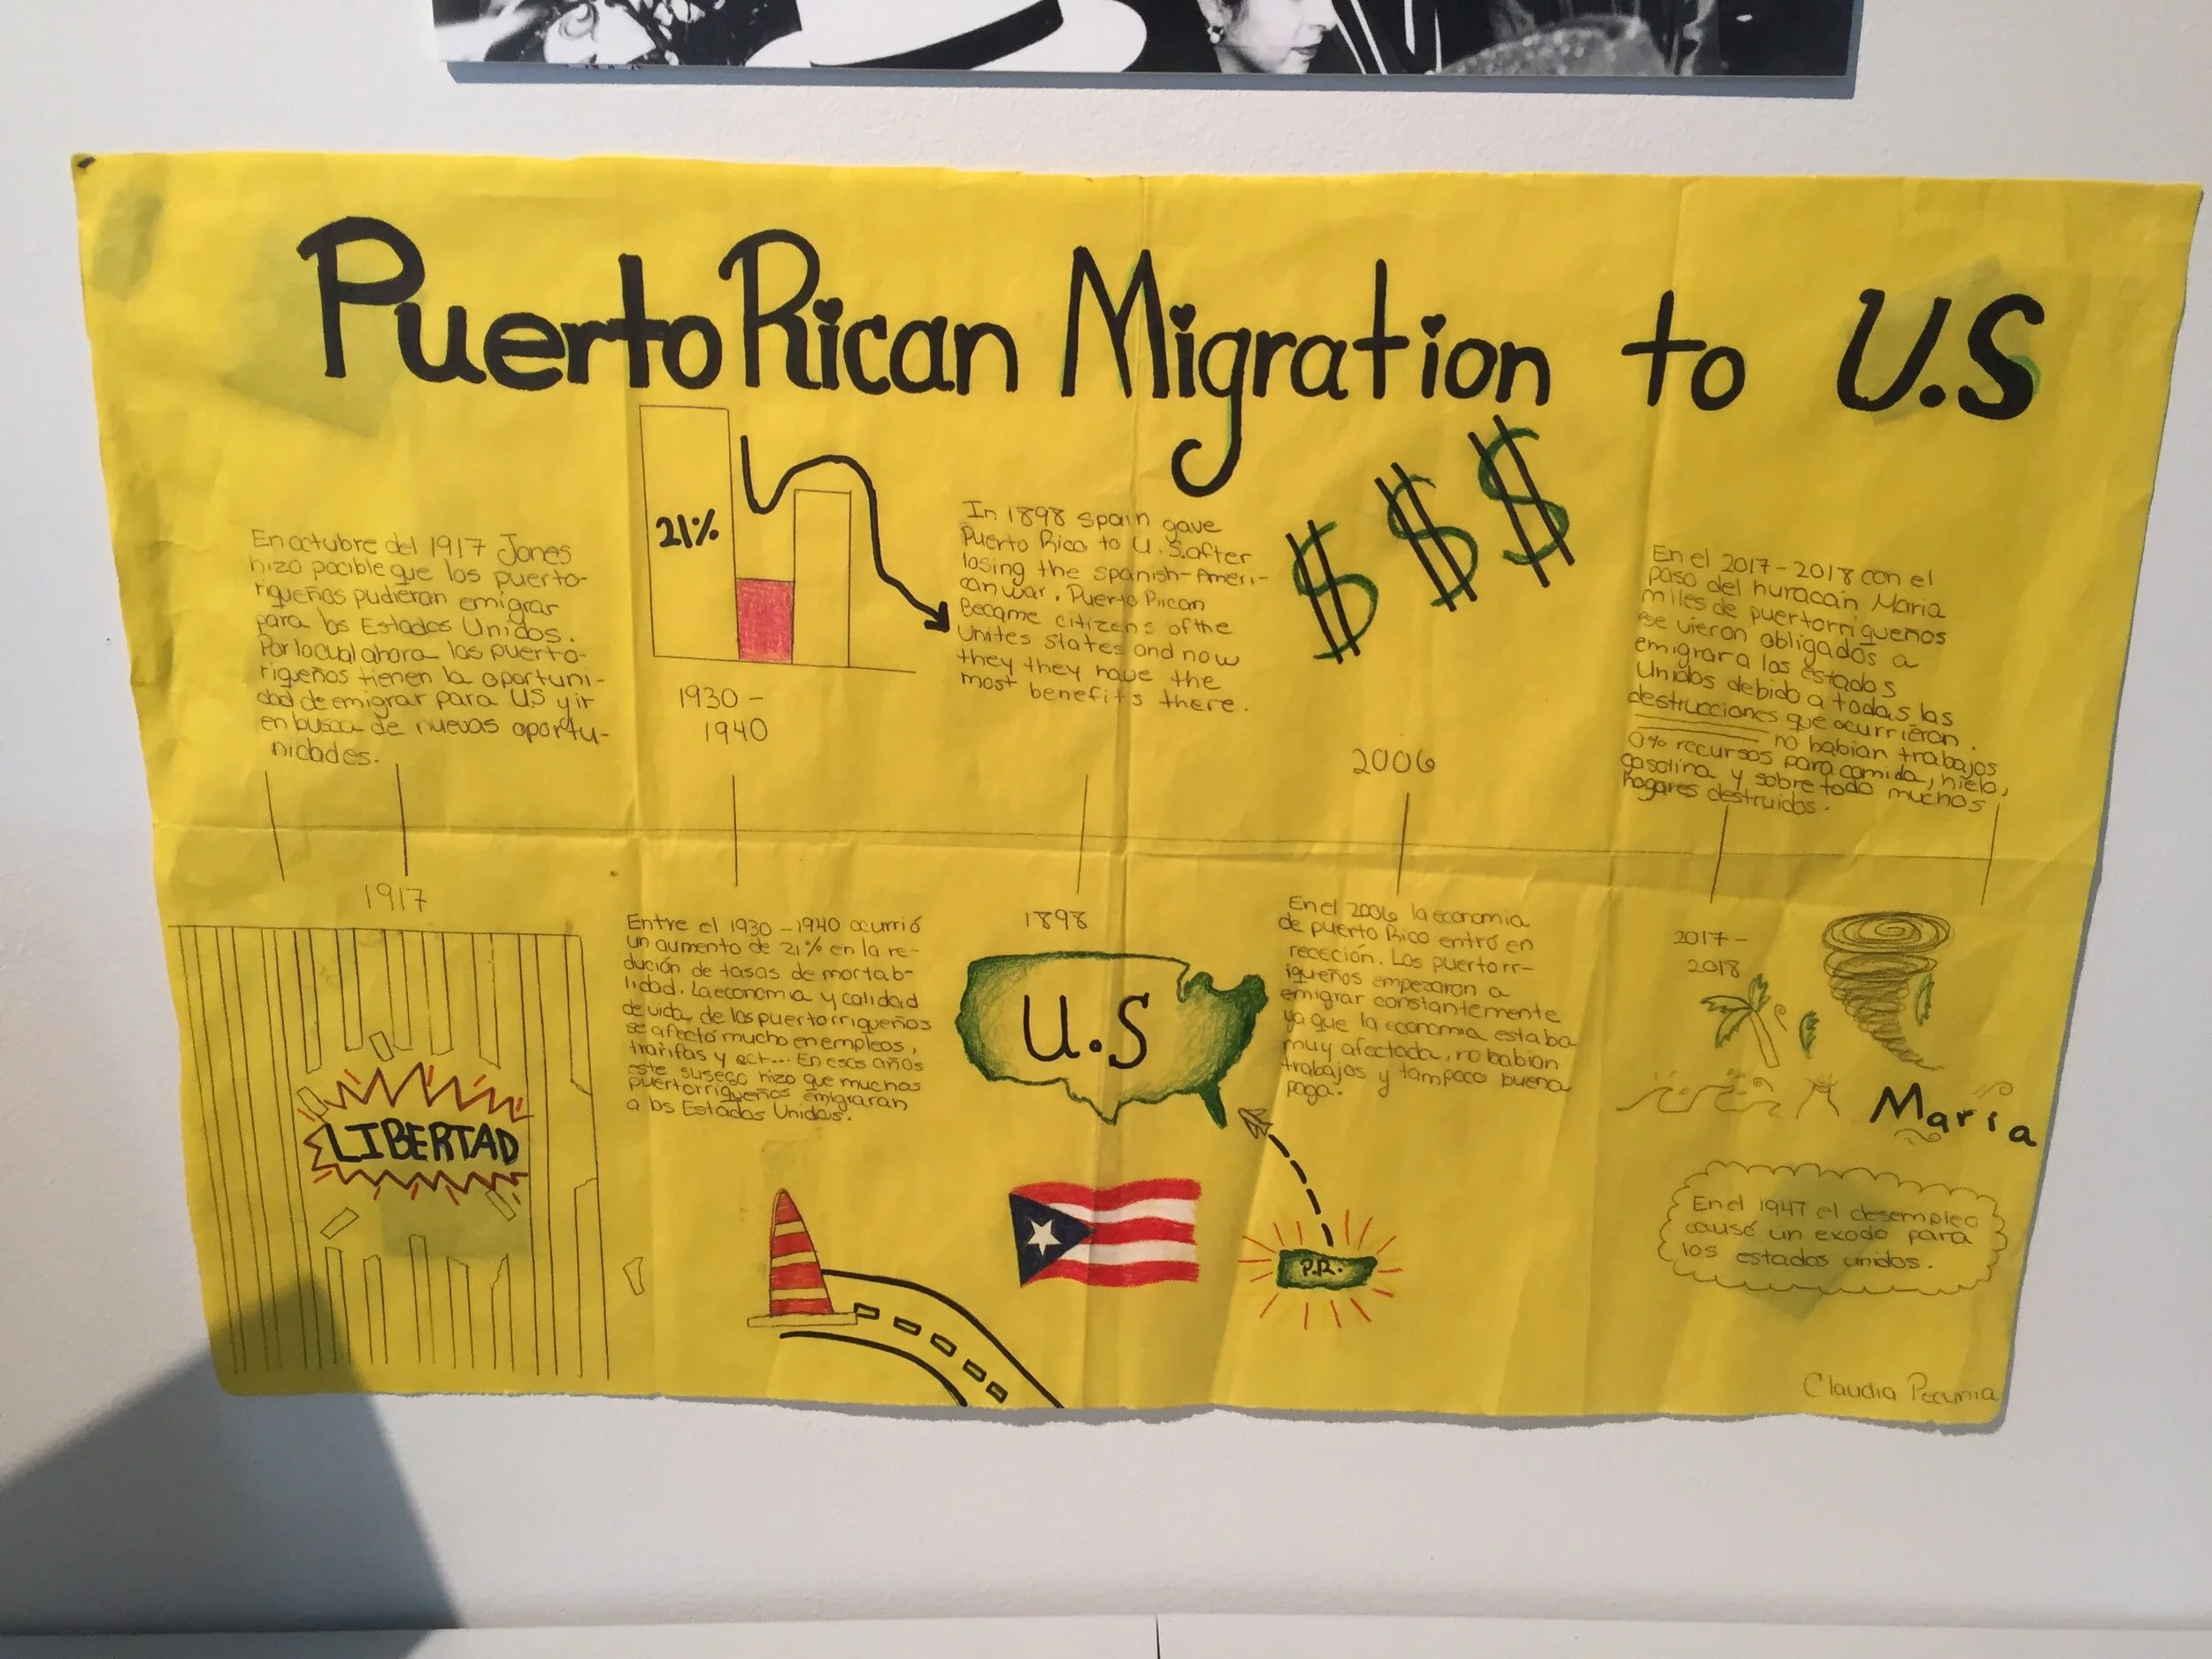 Puerto Rican Migration to U.S
En octubre del 1917 Jones
hizo pocible que los puerto-
riqueños pudieran emigrar
para los Estados Unidos.
Por lo cual ahora los puerto-
riqueños tienen la oportuni-
dad de emigrar para U.S y ir
en busca de nuevas oportu-
nidades.
1917
LIBERTAD
21%
1930 -
1940
Entre el 1930 - 1940 ocurrió
un aumento de 21% en la re-
dución de tasas de mortab-
lidad. La economia y calidad
de vida de los puertorriqueños
se afectó mucho en empleos,
trarifas y ect... En esos años
este suseso hizo que muchos
puertorriqueños emigraran
a los Estados Unidos.
In 1898 Spain gave
Puerto Rico to U.S. after
losing the Spanish-Ameri-
can war. Puerto Rican
Became citizens of the
Unites States and now
they they have the
most benefits there.
1898
U.S
P.R.
$ $ $
2006
En el 2006 la economia
de puerto Rico entró en
receción. Los puertorr-
iqueños empezaron a
emigrar constantemente
ya que la economia estaba
muy afectada, no habian
trabajos y tampoco buena
paga.
En el 2017-2018 con el
paso del huracán Maria
miles de puertorriqueños
se vieron obligados a
emigrar a los Estados
Unidos debido a todas las
destrucciones que ocurrierón.
no habian trabajos
0% recursos para comida, hielo,
gasolina y sobre todo muchos
hogares destruidos.
2017-
2018
María
En el 1947 el desempleo
causó un exodo para
los estados unidos.
Claudia Pecunia